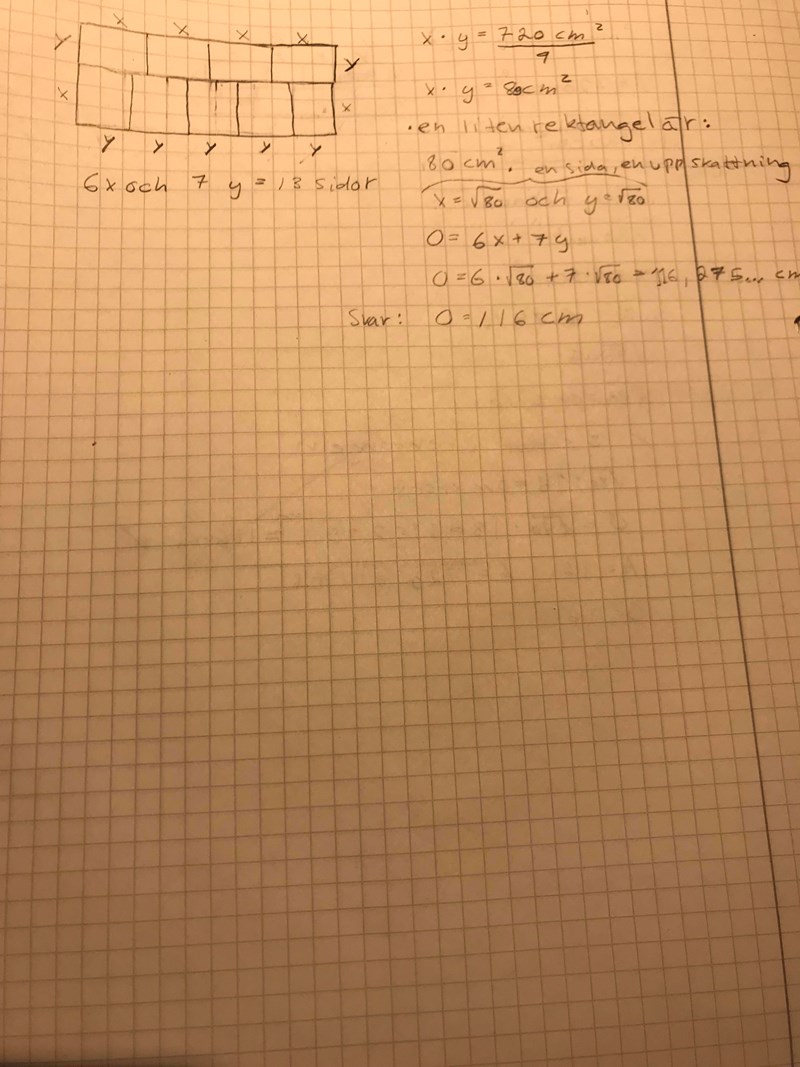 x x x x
y y
x x
y y y y y
6x och 7 y = 13 sidor
x · y = 720 cm²
9
x · y = 80cm²
· en liten rektangel är:
80 cm². en sida, en uppskattning
x = √80 och y = √80
O = 6x + 7y
O = 6 · √80 + 7 · √80 = 116,275... cm
Svar: O = 116 cm